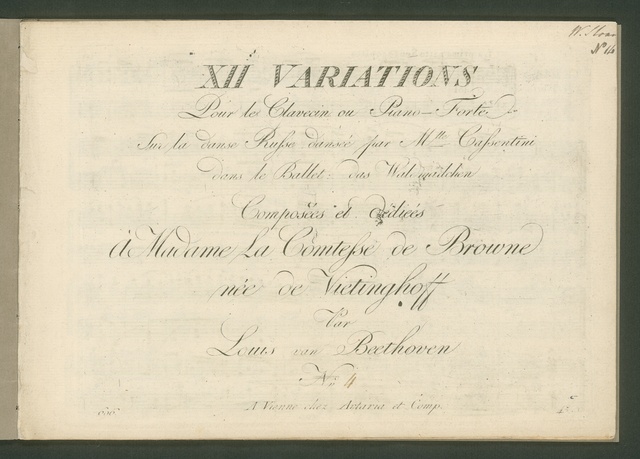 Nº 14
XII VARIATIONS
Pour le Clavecin ou Piano-Forte
Sur la danse Russe dansée par Mlle Cassentini
dans le Ballet: das Waldmädchen
Composées et dediées
à Madame La Comtesse de Browne
née de Vietinghoff
Par
Louis van Beethoven
Nro 4
A Vienne chez Artaria et Comp.